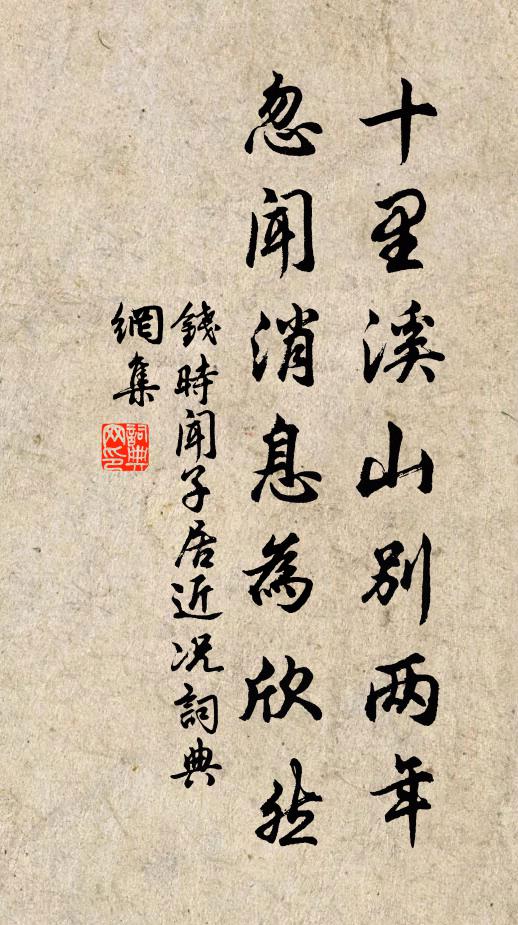 十里溪山别两年
忽闻消息為欣然
錢時闻子居近况詞典
網集
詞典网印